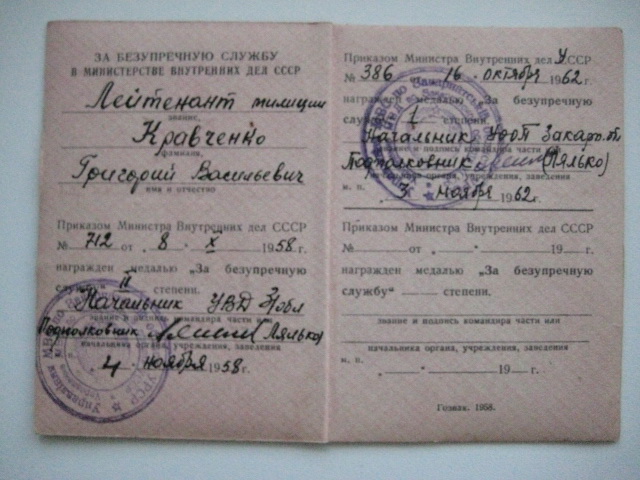 ЗА БЕЗУПРЕЧНУЮ СЛУЖБУ
В МИНИСТЕРСТВЕ ВНУТРЕННИХ ДЕЛ СССР
Лейтенант милиции
звание,
Кравченко
фамилия,
Григорий Васильевич
имя и отчество
Приказом Министра Внутренних дел СССР
№ 712 от „ 8 " X 1958 г.
награжден медалью „За безупречную
службу" II степени.
Начальник УВД З/обл
звание и подпись командира части или
Подполковник (Лялько)
начальника органа, учреждения, заведения
4 " ноября 1958г.
Приказом Министра Внутренних дел УССР
№ 386 от „ 16 " октября 1962 г.
награжден медалью „За безупречную
службу" 1 степени.
Начальник УООП Закарп. обл
звание и подпись командира части или
Подполковник (Лялько)
начальника органа, учреждения, заведения
м. п. „ 3 " ноября 1962г.
Приказом Министра Внутренних дел СССР
№ от „ " 19 г.
награжден медалью „За безупречную
службу" степени.
звание и подпись командира части или
начальника органа, учреждения, заведения
м. п. „ " 19 г.
Гознак. 1958.